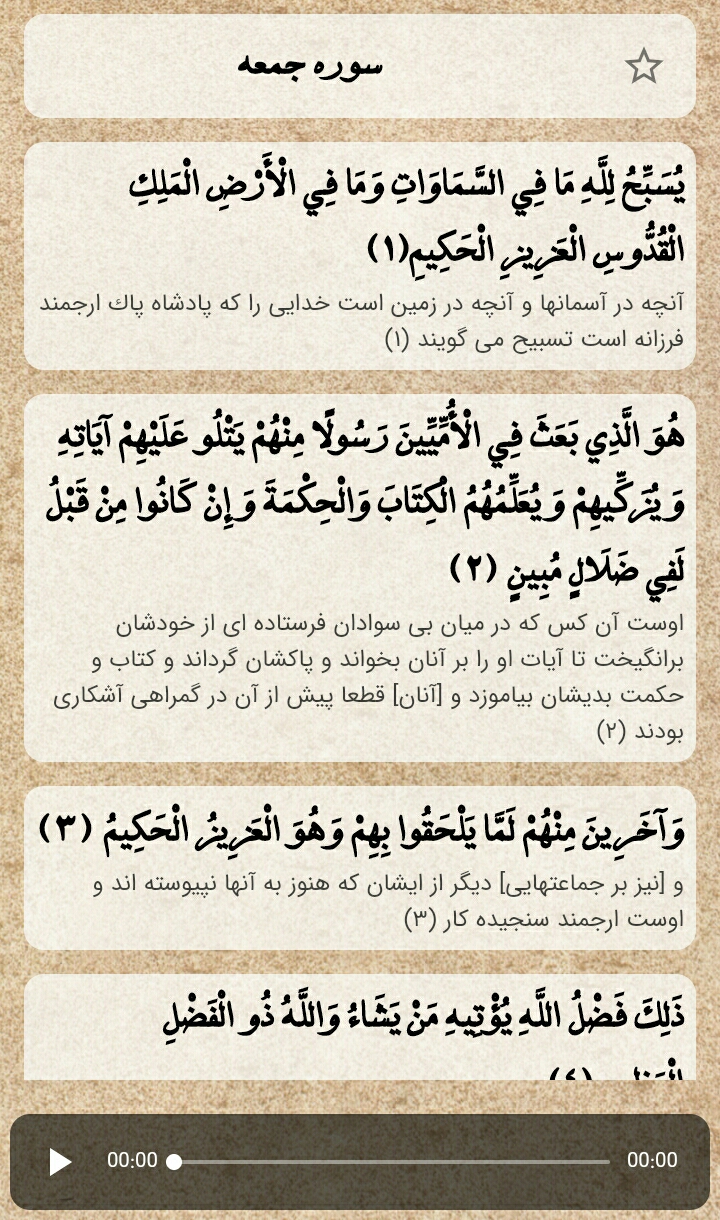 سوره جمعه
يُسَبِّحُ لِلَّهِ مَا فِي السَّمَاوَاتِ وَمَا فِي الْأَرْضِ الْمَلِكِ
الْقُدُّوسِ الْعَزِيزِ الْحَكِيمِ(۱)
آنچه در آسمانها و آنچه در زمین است خدایی را که پادشاه پاك ارجمند
فرزانه است تسبیح می گویند (۱)
هُوَ الَّذِي بَعَثَ فِي الْأُمِّيِّينَ رَسُولًا مِنْهُمْ يَتْلُو عَلَيْهِمْ آيَاتِهِ
وَيُزَكِّيهِمْ وَيُعَلِّمُهُمُ الْكِتَابَ وَالْحِكْمَةَ وَإِنْ كَانُوا مِنْ قَبْلُ
لَفِي ضَلَالٍ مُبِينٍ (۲)
اوست آن کس که در میان بی سوادان فرستاده ای از خودشان
برانگیخت تا آیات او را بر آنان بخواند و پاکشان گرداند و کتاب و
حکمت بدیشان بیاموزد و [آنان] قطعا پیش از آن در گمراهی آشکاری
بودند (۲)
وَآخَرِينَ مِنْهُمْ لَمَّا يَلْحَقُوا بِهِمْ وَهُوَ الْعَزِيزُ الْحَكِيمُ (۳)
و [نیز بر جماعتهایی] دیگر از ایشان که هنوز به آنها نپیوسته اند و
اوست ارجمند سنجیده کار (۳)
ذَلِكَ فَضْلُ اللَّهِ يُؤْتِيهِ مَنْ يَشَاءُ وَاللَّهُ ذُو الْفَضْلِ
00:00 00:00